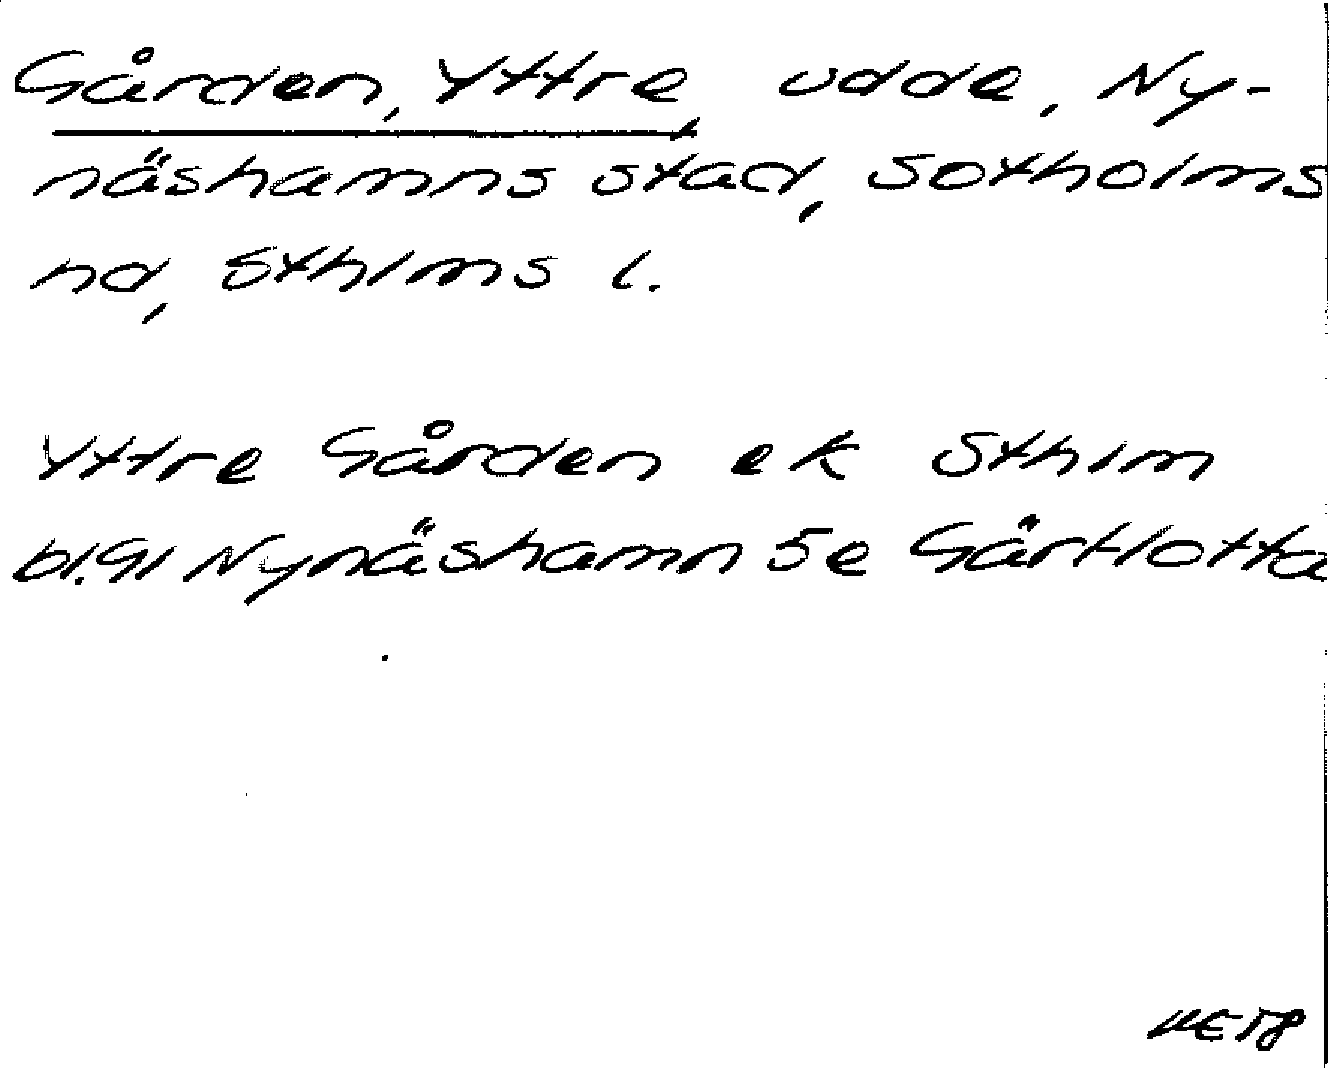 Gården, Yttre, udde, Ny-
näshamns stad, Sotholms
hd, Sthlms l.
Yttre Gården ek Sthlm
bl.91 Nynäshamn 5e Gårtlotta